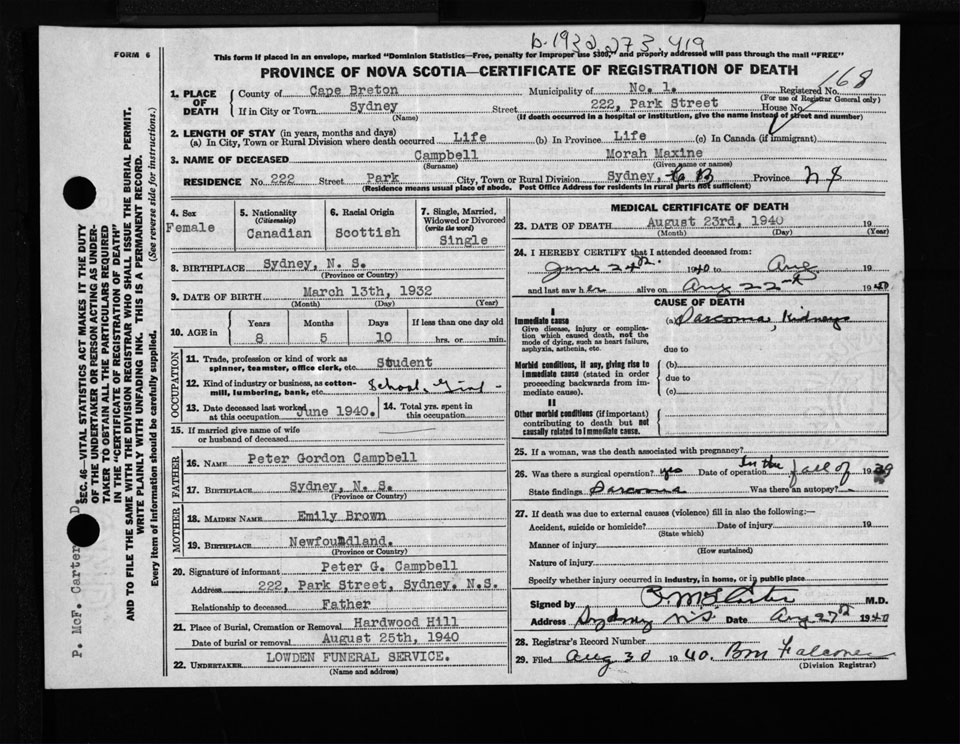 b. 1932 273 419
FORM 6
This form if placed in an envelope, marked "Dominion Statistics—Free, penalty for improper use $300," and properly addressed will pass through the mail "FREE"
PROVINCE OF NOVA SCOTIA—CERTIFICATE OF REGISTRATION OF DEATH
168
1. PLACE OF DEATH
County of Cape Breton Municipality of No. 1. Registered No.
(For use of Registrar General only)
If in City or Town Sydney Street 222, Park Street House No.
(Name) (If death occurred in a hospital or institution, give the name instead of street and number)
2. LENGTH OF STAY (in years, months and days)
(a) In City, Town or Rural Division where death occurred Life (b) In Province Life (c) In Canada (if immigrant)
3. NAME OF DECEASED Campbell Morah Maxine
(Surname) (Given name or names)
RESIDENCE No. 222 Street Park City, Town or Rural Division Sydney, C B Province N S
(Residence means usual place of abode. Post Office Address for residents in rural parts not sufficient)
4. Sex
Female
5. Nationality
(Citizenship)
Canadian
6. Racial Origin
Scottish
7. Single, Married, Widowed or Divorced
(write the word)
Single
8. BIRTHPLACE Sydney, N. S.
(Province or Country)
9. DATE OF BIRTH March 13th, 1932
(Month) (Day) (Year)
10. AGE in
Years Months Days If less than one day old
8 5 10 hrs. or min.
OCCUPATION
11. Trade, profession or kind of work as spinner, teamster, office clerk, etc. Student
12. Kind of industry or business, as cotton-mill, lumbering, bank, etc. School Girl -
13. Date deceased last worked at this occupation June 1940.
14. Total yrs. spent in this occupation
15. If married give name of wife or husband of deceased
FATHER
16. Name Peter Gordon Campbell
17. Birthplace Sydney, N. S.
(Province or Country)
MOTHER
18. Maiden Name Emily Brown
19. Birthplace Newfoundland.
(Province or Country)
20. Signature of informant Peter G. Campbell
Address 222, Park Street, Sydney. N.S.
Relationship to deceased Father
21. Place of Burial, Cremation or Removal Hardwood Hill
Date of burial or removal August 25th, 1940
22. Undertaker LOWDEN FUNERAL SERVICE.
(Name and address)
MEDICAL CERTIFICATE OF DEATH
23. DATE OF DEATH August 23rd, 1940 19
(Month) (Day) (Year)
24. I HEREBY CERTIFY that I attended deceased from:
June 24th 1940 to Aug 19
and last saw her alive on Aug 22nd 1940
CAUSE OF DEATH
I
Immediate cause (a) Sarcoma, Kidneys
Give disease, injury or complication which caused death, not the mode of dying, such as heart failure, asphyxia, asthenia, etc.
due to
Morbid conditions, if any, giving rise to immediate cause (stated in order proceeding backwards from immediate cause).
(b)
due to
(c)
II
Other morbid conditions (if important) contributing to death but not causally related to immediate cause.
25. If a woman, was the death associated with pregnancy?
26. Was there a surgical operation? yes Date of operation In the fall of 1939
State findings Sarcoma Was there an autopsy? -
27. If death was due to external causes (violence) fill in also the following:—
Accident, suicide or homicide? Date of injury 19
(State which)
Manner of injury
(How sustained)
Nature of injury
Specify whether injury occurred in industry, in home, or in public place
Signed by M.D.
Address Sydney N.S. Date Aug 27th 1940
28. Registrar's Record Number
29. Filed Aug 30 1940. BM Falconer
(Division Registrar)
SEC. 46—VITAL STATISTICS ACT MAKES IT THE DUTY
OF THE UNDERTAKER OR PERSON ACTING AS UNDER-
TAKER TO OBTAIN ALL THE PARTICULARS REQUIRED
IN THE "CERTIFICATE OF REGISTRATION OF DEATH"
AND TO FILE THE SAME WITH THE DIVISION REGISTRAR WHO SHALL ISSUE THE BURIAL PERMIT.
WRITE PLAINLY WITH UNFADING INK. THIS IS A PERMANENT RECORD.
Every item of information should be carefully supplied. (See reverse side for instructions.)
P. McF. Carter